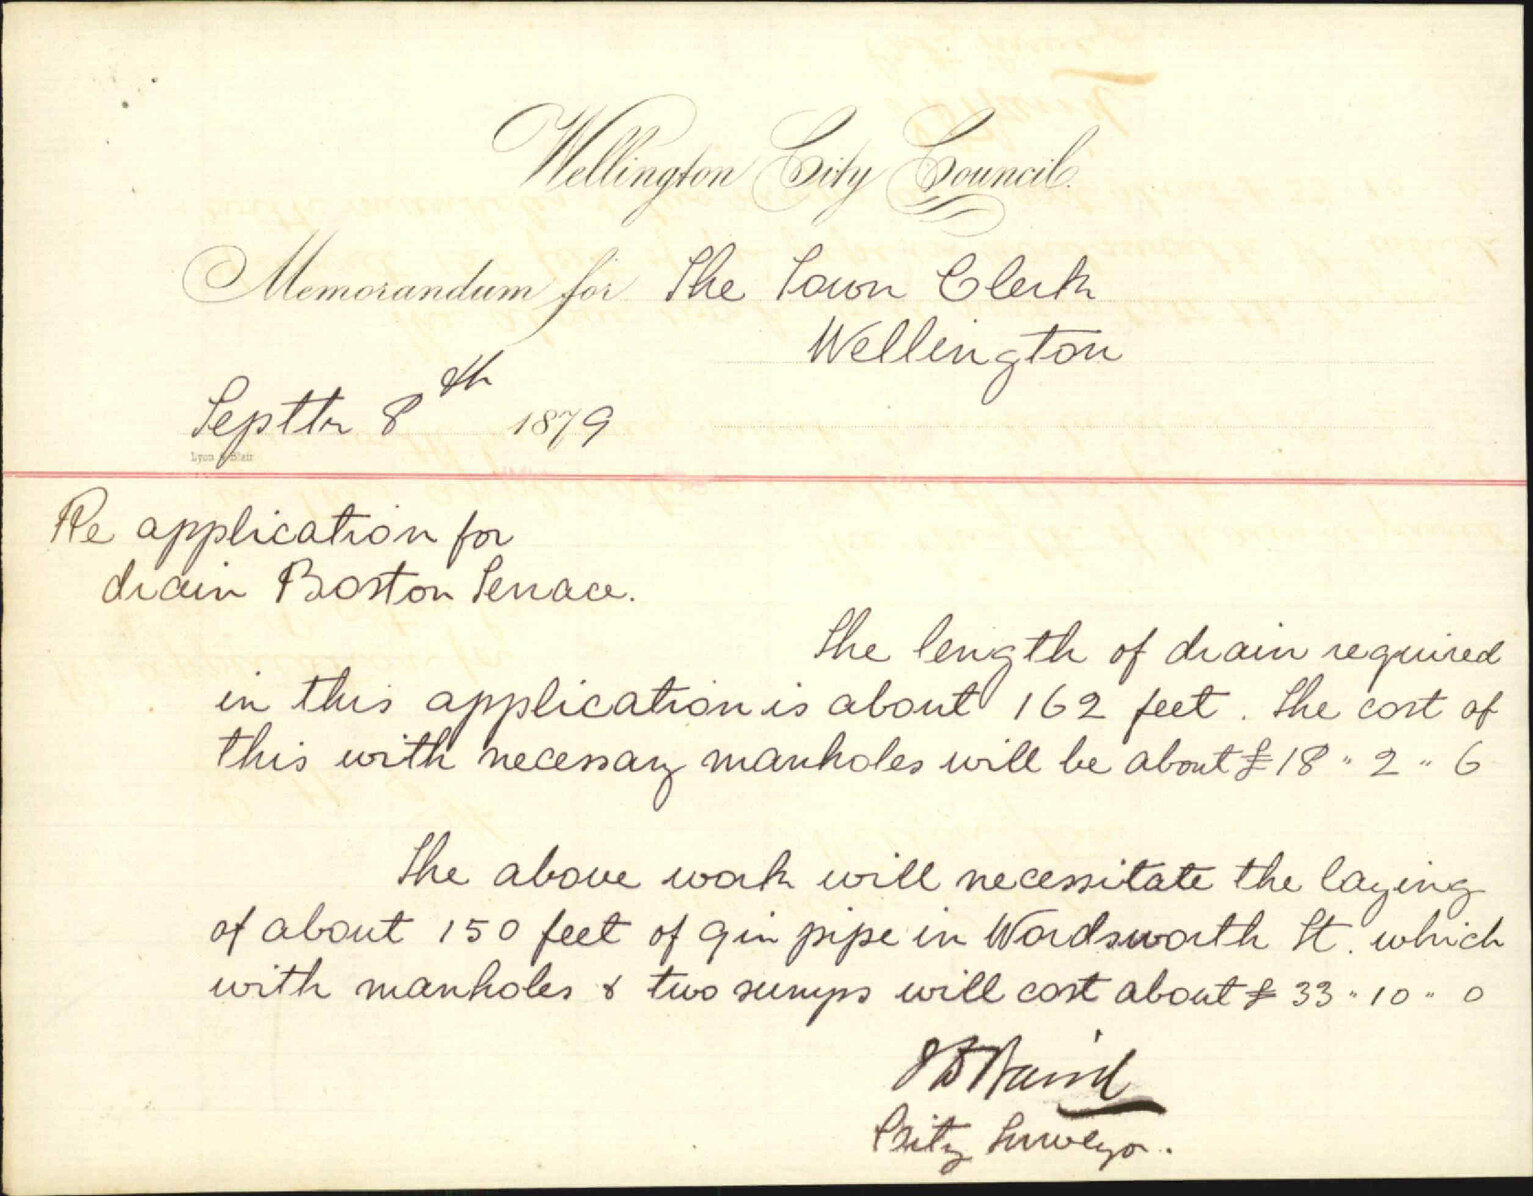 Wellington City Council.
Memorandum for The Town Clerk
Wellington
Septtr 8th 1879
Lyon & Blair
Re application for
drain Boston Terrace.
The length of drain required
in this application is about 162 feet. The cost of
this with necessary manholes will be about £18 " 2 " 6
The above work will necessitate the laying
of about 150 feet of 9 in pipe in Wordsworth St. which
with manholes & two sumps will cost about £33 " 10 " 0
J B Baird
City Surveyor.